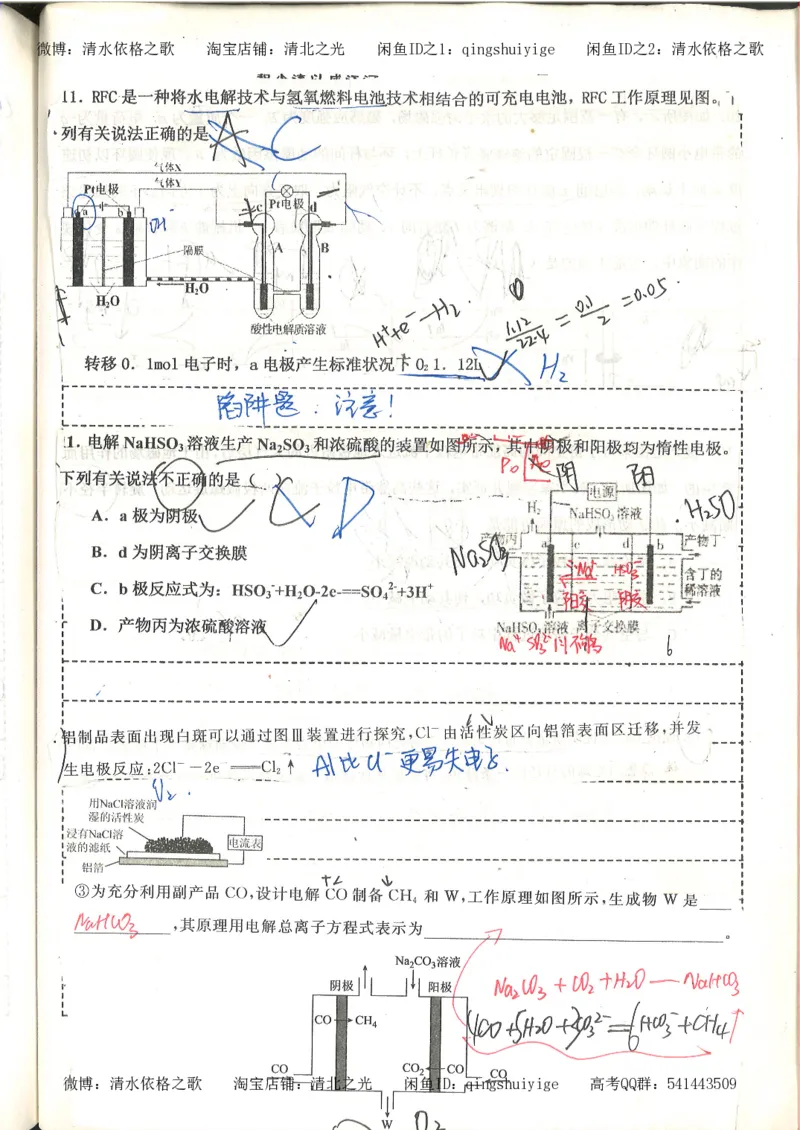 微博：清水依格之歌 淘宝店铺：清北之光 闲鱼ID之1：qingshuiyige 闲鱼ID之2：清水依格之歌
11．RFC是一种将水电解技术与氢氧燃料电池技术相结合的可充电电池，RFC工作原理见图。下
列有关说法正确的是 A C
气体X
气体Y
Pt电极
Pt电极
a b c d
OH-
隔膜
A B
H₂O
H₂O
酸性电解质溶液
H⁺+e⁻—H₂
1.12/22.4 = 0.1/2 = 0.05
转移0．1mol电子时，a电极产生标准状况下O₂ 1．12L
H₂
陷阱题：注意！
11．电解NaHSO₃溶液生产Na₂SO₃和浓硫酸的装置如图所示，其中阴极和阳极均为惰性电极。
下列有关说法不正确的是 C D
A．a极为阴极
B．d为阴离子交换膜
C．b极反应式为：HSO₃⁻+H₂O-2e-==SO₄²⁻+3H⁺
D．产物丙为浓硫酸溶液
阴 阳
电源
H₂
NaHSO₃溶液
H₂SO
产物丙
产物丁
Na₂SO₃
a c d b
Na⁺ HSO₃⁻
阳交 阴交
含丁的
稀溶液
NaHSO₃溶液 离子交换膜
铝制品表面出现白斑可以通过图Ⅲ装置进行探究，Cl⁻由活性炭区向铝箔表面区迁移，并发
生电极反应：2Cl⁻－2e⁻══Cl₂↑ Al比Cl⁻更易失电子.
O₂
用NaCl溶液润
湿的活性炭
浸有NaCl溶
液的滤纸
电流表
铝箔
③为充分利用副产品CO，设计电解CO制备CH₄和W，工作原理如图所示，生成物W是____
NaHCO₃，其原理用电解总离子方程式表示为____。
Na₂CO₃溶液
阴极 阳极
Na₂CO₃+CO₂+H₂O—NaHCO₃
CO→CH₄
CO₂←CO
CO CO
W
微博：清水依格之歌 淘宝店铺：清北之光 闲鱼ID：qingshuiyige 高考QQ群：541443509